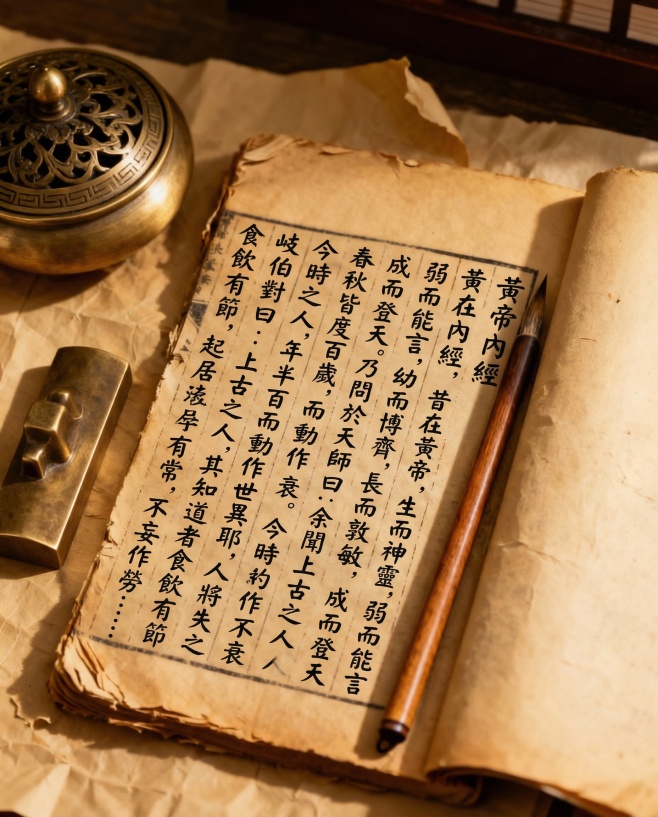 黃帝內經
黃在內經，昔在黃帝，生而神靈，弱而能言
弱而能言，幼而博齊，長而敦敏，成而登天
成而登天。乃問於天師曰：余聞上古之人人
春秋皆度百歲，而動作衰。今時約作不衰
今時之人，年半百而動作世異耶，人將失之
岐伯對曰：上古之人，其知道者食飲有節
食飲有節，起居有常，不妄作勞……